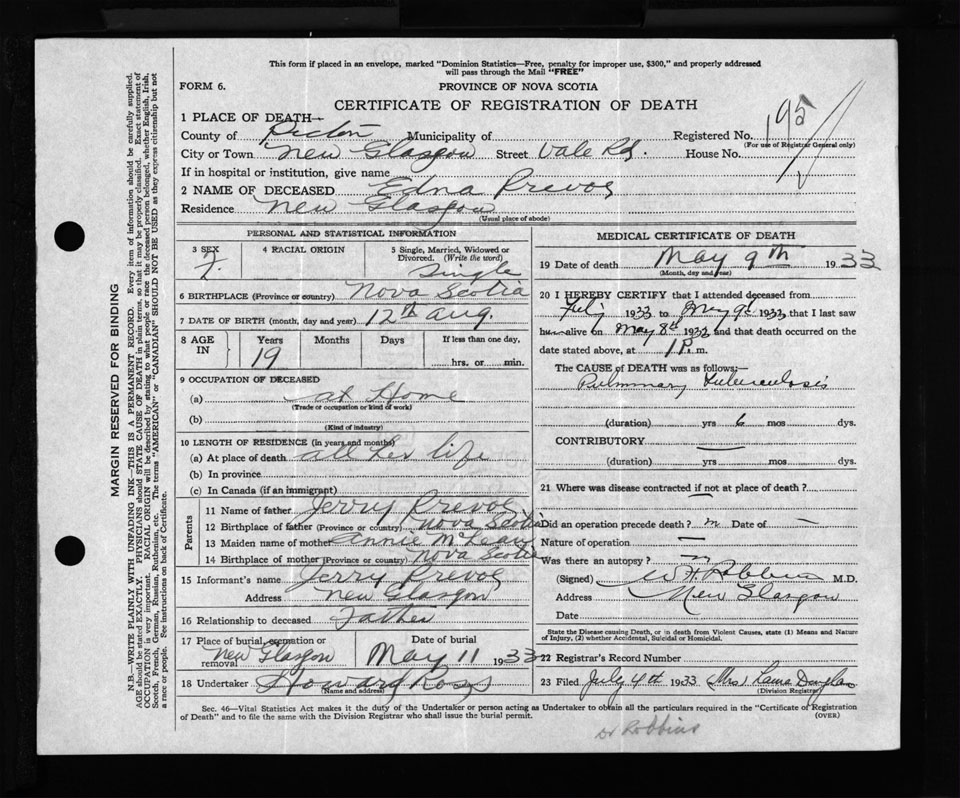 This form if placed in an envelope, marked "Dominion Statistics—Free, penalty for improper use, $300," and properly addressed
will pass through the Mail "FREE"
FORM 6.
PROVINCE OF NOVA SCOTIA
CERTIFICATE OF REGISTRATION OF DEATH
195
1 PLACE OF DEATH—
County of Pictou Municipality of Registered No.
(For use of Registrar General only)
City or Town New Glasgow Street Vale Rd. House No.
If in hospital or institution, give name
2 NAME OF DECEASED Edna Prevoe
Residence New Glasgow
(Usual place of abode)
PERSONAL AND STATISTICAL INFORMATION
3 SEX F. 4 RACIAL ORIGIN 5 Single, Married, Widowed or Divorced. (Write the word) Single
6 BIRTHPLACE (Province or country) Nova Scotia
7 DATE OF BIRTH (month, day and year) 12th Aug.
8 AGE IN Years Months Days If less than one day,
19 hrs. or min.
9 OCCUPATION OF DECEASED
(a) at Home
(Trade or occupation or kind of work)
(b)
(Kind of industry)
10 LENGTH OF RESIDENCE (in years and months)
(a) At place of death all her life
(b) In province
(c) In Canada (if an immigrant)
Parents
11 Name of father Jerry Prevoe
12 Birthplace of father (Province or country) Nova Scotia
13 Maiden name of mother Annie McLean
14 Birthplace of mother (Province or country) Nova Scotia
15 Informant's name Jerry Prevoe
Address New Glasgow
16 Relationship to deceased Father
17 Place of burial, cremation or removal New Glasgow Date of burial May 11 1933
18 Undertaker Howard Ross
(Name and address)
MEDICAL CERTIFICATE OF DEATH
19 Date of death May 9th 1933
(Month, day and year)
20 I HEREBY CERTIFY that I attended deceased from
1933 to May 9th 1933 that I last saw
h alive on May 8th 1933 and that death occurred on the
date stated above, at 1 P. m.
The CAUSE OF DEATH was as follows:—
Pulmonary Tuberculosis
(duration) yrs 6 mos dys.
CONTRIBUTORY —
(duration) yrs mos dys.
21 Where was disease contracted if not at place of death? —
Did an operation precede death? Date of —
Nature of operation —
Was there an autopsy?
(Signed) W H Robbins M.D.
Address New Glasgow
Date
State the Disease causing Death, or in death from Violent Causes, state (1) Means and Nature
of Injury, (2) whether Accidental, Suicidal or Homicidal.
22 Registrar's Record Number
23 Filed July 4th 1933 Mrs Laura Douglas
(Division Registrar)
Sec. 46—Vital Statistics Act makes it the duty of the Undertaker or person acting as Undertaker to obtain all the particulars required in the "Certificate of Registration
of Death" and to file the same with the Division Registrar who shall issue the burial permit.
(OVER)
Dr Robbins
MARGIN RESERVED FOR BINDING
N.B.—WRITE PLAINLY WITH UNFADING INK—THIS IS A PERMANENT RECORD. Every item of information should be carefully supplied.
AGE should be stated EXACTLY. PHYSICIANS should STATE CAUSE OF DEATH in plain terms, so that it may be properly classified. Exact statement of
OCCUPATION is very important. RACIAL ORIGIN will be described by stating to what people or race the deceased person belonged, whether English, Irish,
Scotch, French, German, Russian, Ruthenian, etc. The terms "AMERICAN" or "CANADIAN" SHOULD NOT BE USED as they express citizenship but not
a race or people. See instructions on back of Certificate.